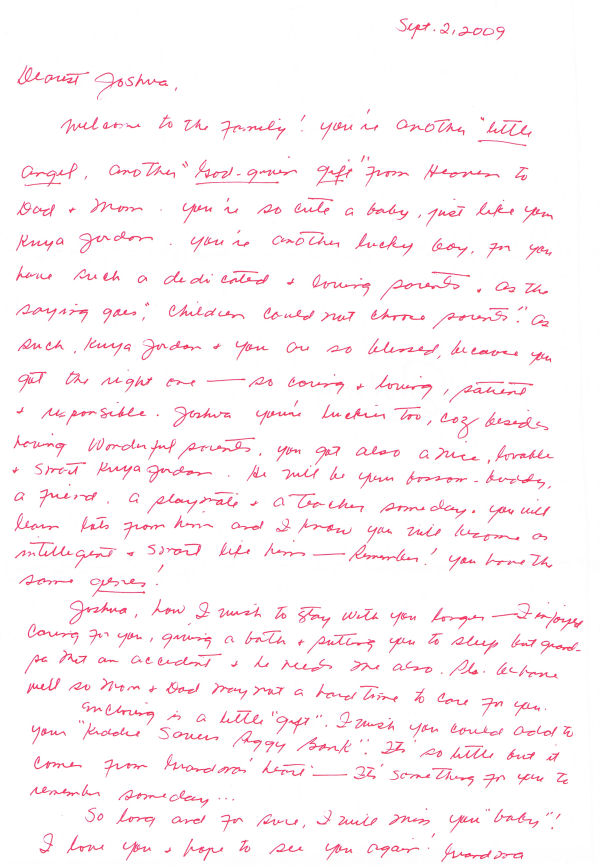 Sept. 2, 2009
Dearest Joshua,
Welcome to the Family! You're another "little
angel, another "God-given gift" from Heaven to
Dad + Mom. You're so cute a baby, just like you
Kuya Jordan. You're another lucky boy, for you
have such a dedicated + loving parents + as the
saying goes, "Children could not choose parents." As
such, Kuya Jordan + you are so blessed, because you
got the right one — so caring + loving, patient
+ responsible. Joshua you're luckier too, coz besides
having wonderful parents, you got also a nice, lovable
+ smart Kuya Jordan. He will be your bosom-buddy,
a friend, a playmate + a teacher someday + you will
learn lots from him and I know you will become as
intelligent + smart like him — Remember! you have the
same genes!
Joshua, how I wish to stay with you longer — I enjoyed
caring for you, giving a bath + putting you to sleep but grand-
pa met an accident + he needs me also. Pls. behave
well so Mom + Dad may not a hard time to care for you.
Enclosing is a little "gift". I wish you could add to
your "Kiddie Savers Piggy Bank". It's so little but it
comes from Grandma's heart — It's something for you to
remember someday...
So long and for sure, I will miss you "baby"!
I love you + hope to see you again! Grandma